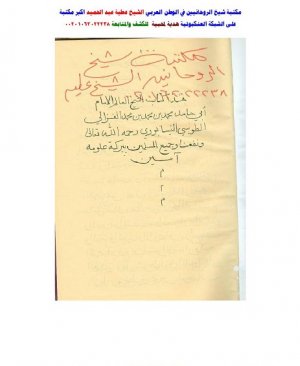 مكتبة شيخ الروحانيين في الوطن العربي الشيخ عطية عبد الحميد اكبر مكتبة
على الشبكة العنكبوتية هدية لمحبية للكشف والمتابعة ٠٠٢٠١٠٦٢٠٢٢٢٣٨
مكتبة شيخ
الروحانين الشيخ عليم
هذا كتاب الشيخ العالم الامام
أبي حامد محمد بن محمد بن محمد الغزالي
الطوسي النيسابوري رحمه الله تعالى
ونفعنا وجميع المسلمين ببركة علومه
آمين
م
٢
م